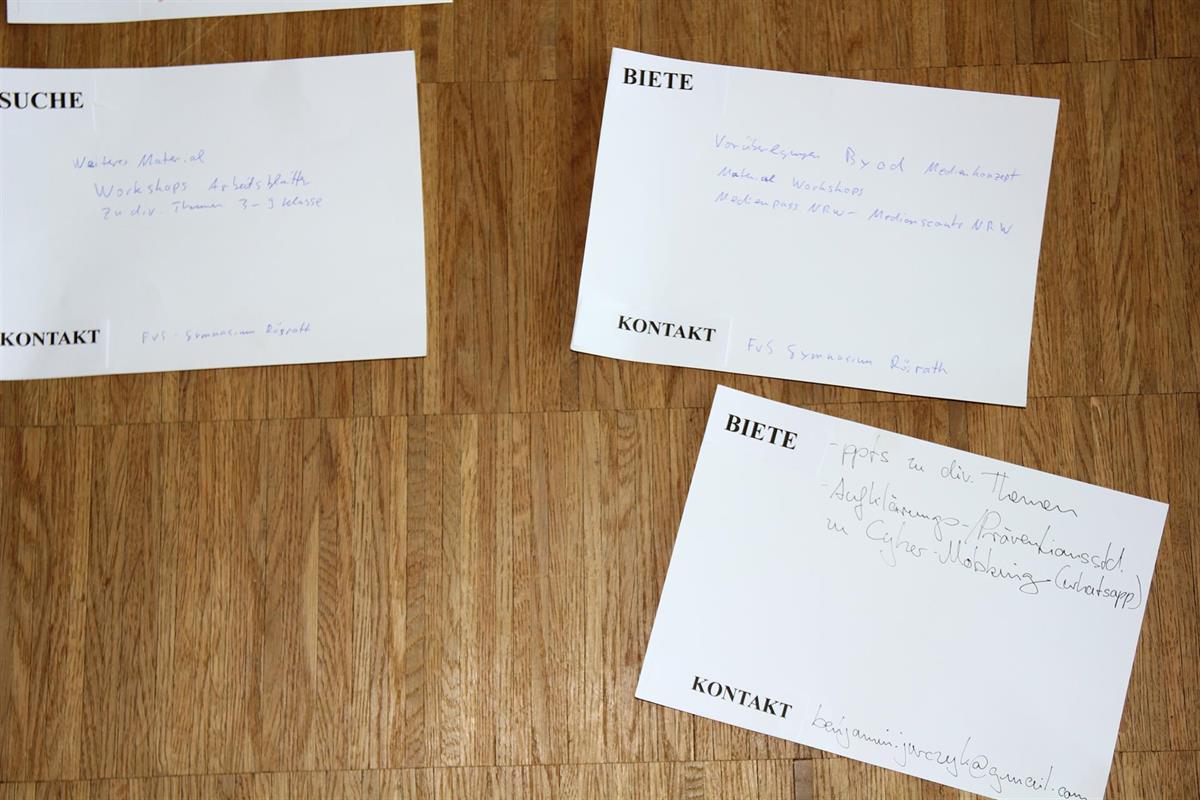 SUCHE
Weiteres Material
Workshops Arbeitsblätter
zu div. Themen 3-9 Klasse
KONTAKT
FvS - Gymnasium Rösrath
BIETE
Vorüberlegungen Byod Medienkonzept
Material Workshops
Medienpass NRW - Medienscouts NRW
KONTAKT
FvS Gymnasium Rösrath
BIETE
-ppts zu div. Themen
-Aufklärungs-/Präventionsstd.
zu Cyber-Mobbing (whatsapp)
KONTAKT
benjamin.jurczyk@gmail.com